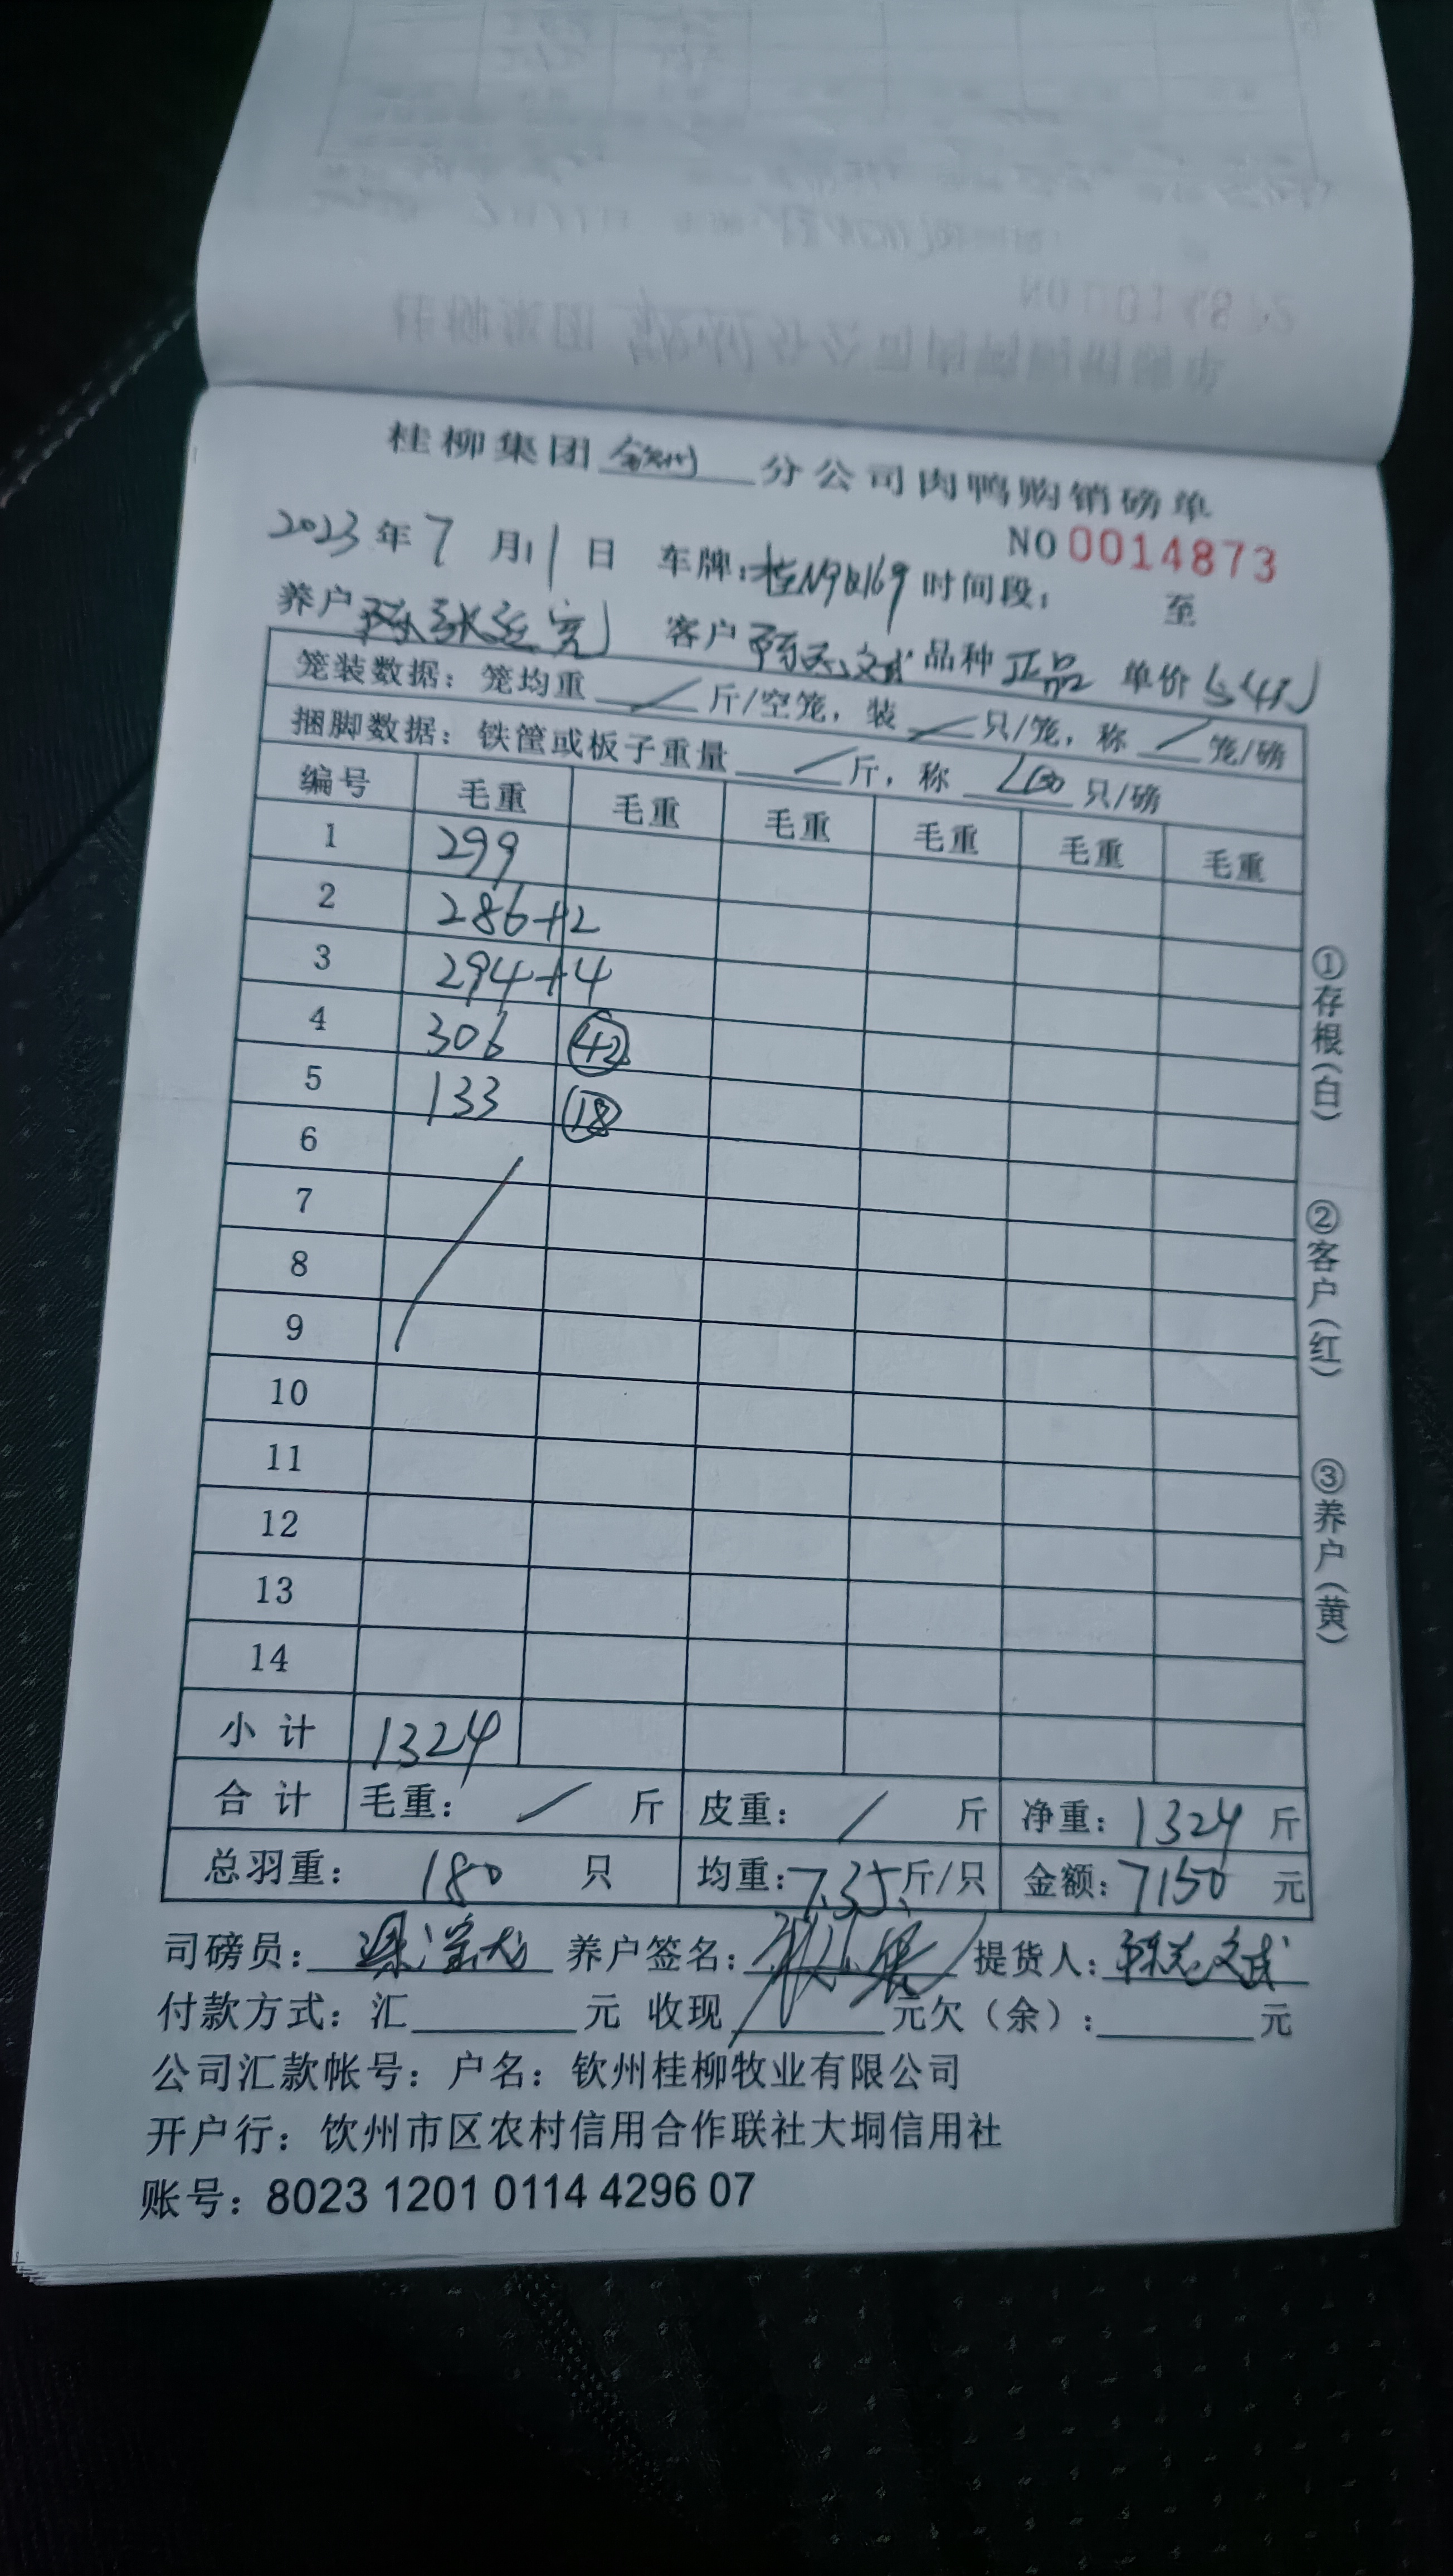 桂柳集团 钦州 分公司肉鸭购销磅单
NO 0014873
2023年7月11日 车牌:桂N9Q169 时间段: 至
养户 客户 陈志文武 品种 正品 单价 5.4元
笼装数据: 笼均重 / 斤/空笼, 装 / 只/笼, 称 / 笼/磅
捆脚数据: 铁筐或板子重量 / 斤, 称 只/磅
编号 毛重 毛重 毛重 毛重 毛重 毛重
1 299
2 286+2
3 294+4
4 306 42
5 133 18
6
7
8
9
10
11
12
13
14
小计 1324
合计 毛重: / 斤 皮重: / 斤 净重: 1324 斤
总羽重: 180 只 均重: 7.35 斤/只 金额: 7150 元
司磅员: 养户签名: 提货人:
付款方式: 汇 元 收现 元欠(余): 元
公司汇款帐号: 户名: 钦州桂柳牧业有限公司
开户行: 饮州市区农村信用合作联社大垌信用社
账号: 8023 1201 0114 4296 07
①存根(白)
②客户(红)
③养户(黄)